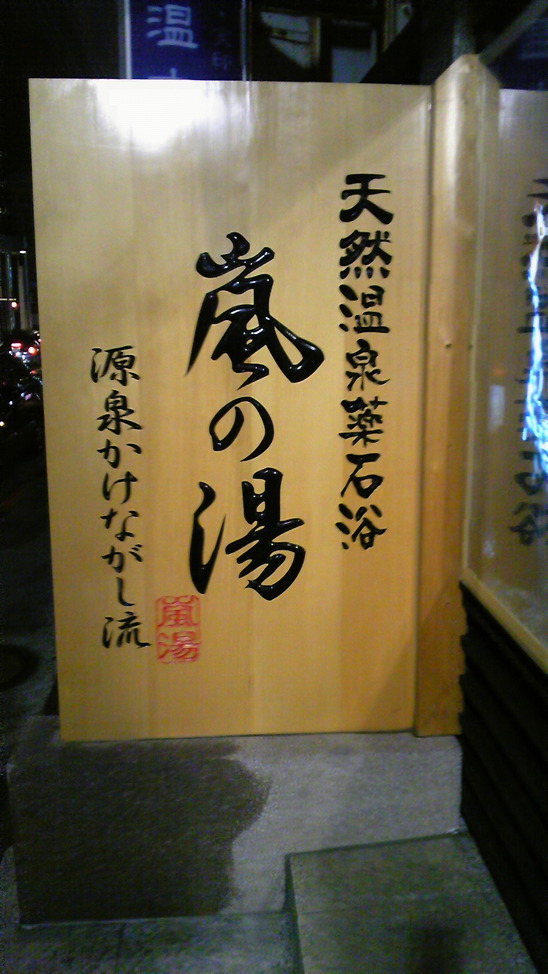 天然温泉薬石浴
嵐の湯
源泉かけながし流
嵐湯
温